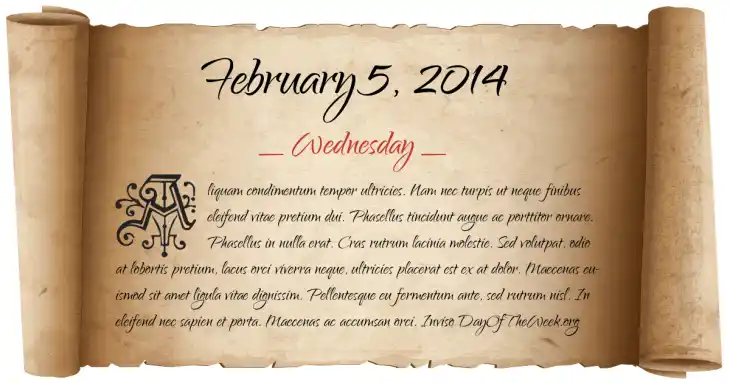 February 5, 2014
_ Wednesday _
Aliquam condimentum tempor ultricies. Nam nec turpis ut neque finibus
eleifend vitae pretium dui. Phasellus tincidunt augue ac porttitor ornare.
Phasellus in nulla erat. Cras rutrum lacinia molestie. Sed volutpat, odio
at lobortis pretium, lacus orci viverra neque, ultricies placerat est ex at dolor. Maecenas eu-
ismod sit amet ligula vitae dignissim. Pellentesque eu fermentum ante, sed rutrum nisl. In
eleifend nec sapien et porta. Maecenas ac accumsan orci. Inviso DayOfTheWeek.org